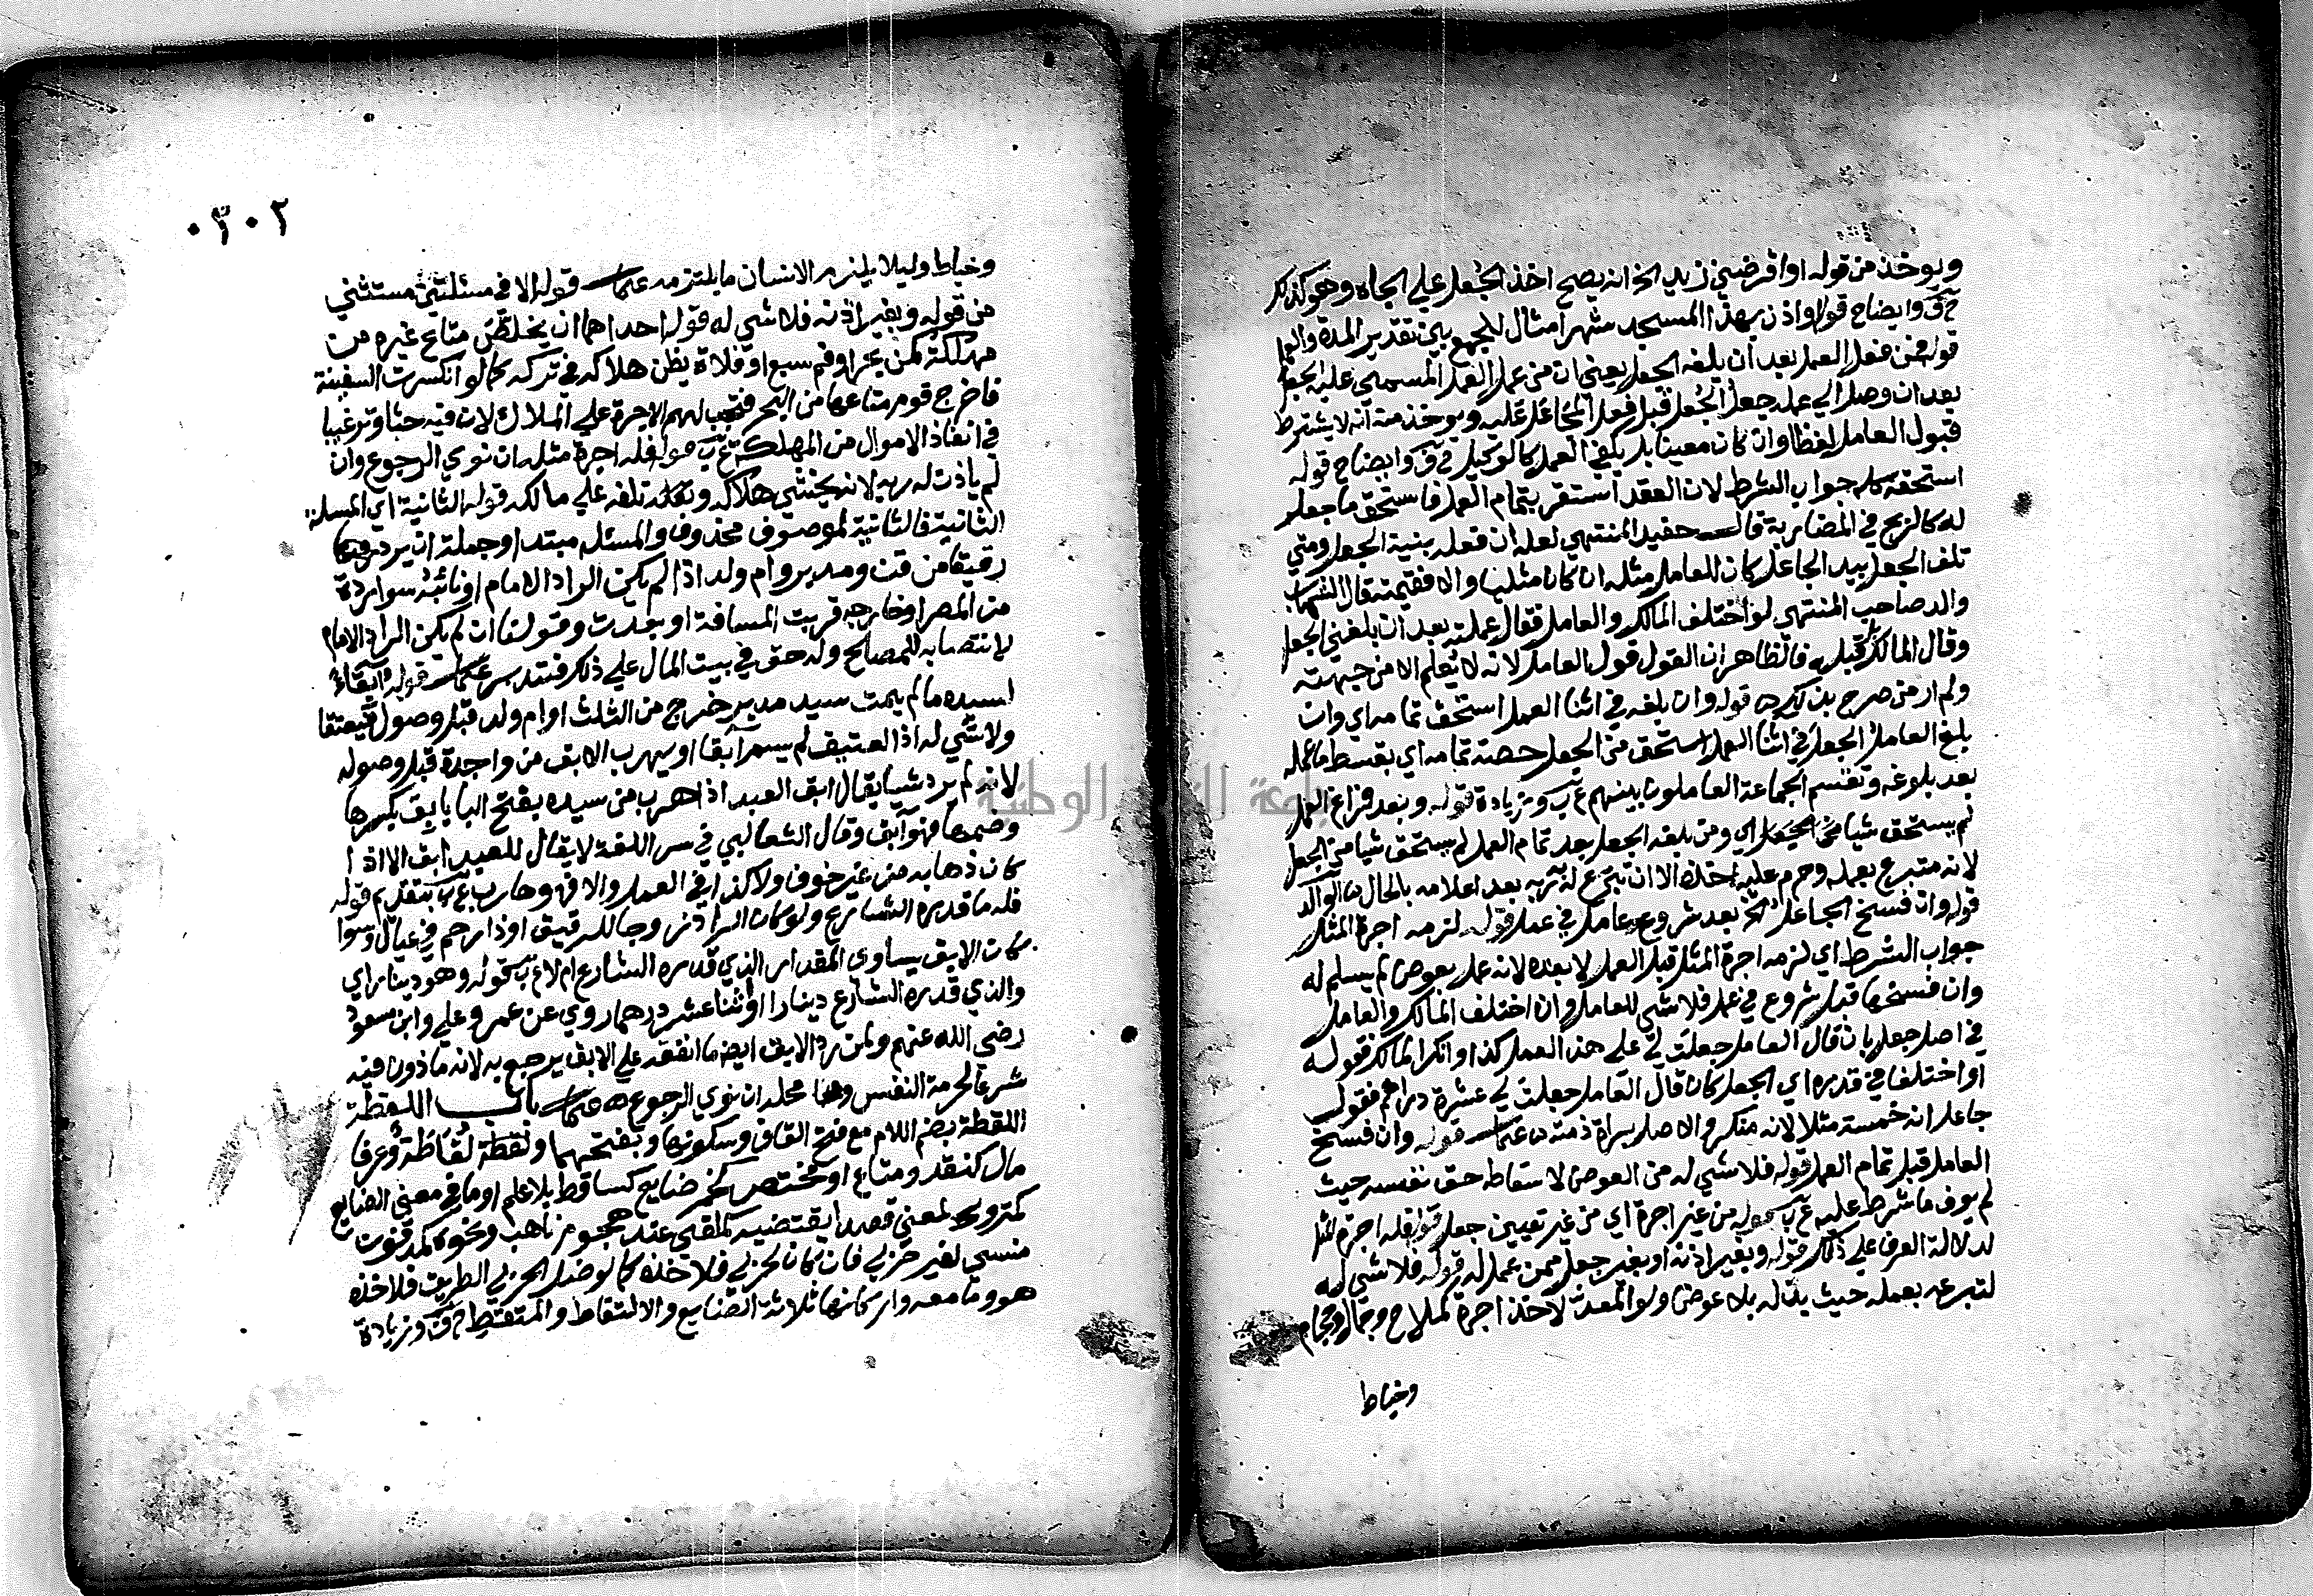 ويوخذ من قوله او اقرضني زيد الخ انه يصح اخذ الجعل علي الجاه وهو كذلك
وايضاح قوله او اذن بهذا المسجد شهرا مثال للجمع بين تقدير المدة والعمل
قوله فمن فعل العمل بعد ان بلغه الجعل يعني ان من عمل العمل المسمي عليه الجعل
بعد ان وصل الي علمه جعل الجعل قبل فعل المجاعل عليه ويوخذ منه انه لا يشترط
قبول العامل لفظا وان كان معينا بل يكفي العمل كالوكيل وايضاح قوله
استحقه كله جواب الشرط لان العقد استقر بتمام العمل فاستحق ما جعل
له كالربح في المضاربة قال حفيد المنتهي لعله ان فعله بنية الجعل ومتي
تلف الجعل بيد الجاعل كان للعامل مثله ان كان مثليا والا فقيمته قال الشهاب
والد صاحب المنتهي لو اختلف المالك والعامل فقال عملته بعد ان بلغني الجعل
وقال المالك قبله فالظاهر ان القول قول العامل لانه لا يعلم الا من جهته
ولم ار من صرح بذلك قوله وان بلغه في اثنا العمل استحق تمامه اي وان
بلغ العامل الجعل في اثنا العمل استحق من الجعل حصة تمامه اي بقسط ما عمله
بعد بلوغه وتقسم الجماعة العاملون بينهم وزيادة قوله وبعد فراغ العمل
لم يستحق شيا من الجعل اي ومن بلغه الجعل بعد تمام العمل لم يستحق شيا من الجعل
لانه متبرع بعمله وحرم عليه اخذه الا ان تبرع له ربه بعد اعلامه بالحال
قوله وان فسخ الجاعل الخ بعد شروع عامل في عمل قوله لزمه اجرة المثل
جواب الشرط اي لزمه اجرة المثل قبل العمل لا بعده لانه عمل بعوض لم يسلم له
وان فسخها قبل شروع في عمل فلا شي للعامل وان اختلف المالك والعامل
في اصل جعل بان قال العامل جعلت لي علي هذا العمل كذا وانكر المالك فقوله
او اختلفا في قدره اي الجعل كان قال العامل جعلت لي عشرة دراهم فقول
جاعل انه خمسة مثلا لانه منكر والاصل براة ذمته قوله وان فسخ
العامل قبل تمام العمل قوله فلا شي له من العوض لاسقاط حق نفسه حيث
لم يوف ما شرط عليه قوله من غير اجرة اي من غير تعيين جعل قوله فله اجرة المثل
لدلالة العرف علي ذلك قوله وبغير اذنه او بغير جعل ممن عمل له قوله فلا شي له
لتبرعه بعمله حيث بذله بلا عوض ولو المعد لاخذ اجرة كملاح وجمال وحجام
وخياط
٣٠٢
وخياط وليلا يلزم الانسان ما يلتزمه قوله الا في مسئلتين مستثني
من قوله وبغير اذنه فلا شي له قوله احداهما ان يخلص متاع غيره من
مهلكة كمن بحر او فم سبع او فلاة يظن هلاكه في تركه كما لو انكسرت السفينة
فاخرج قوم متاعها من البحر فتجب لهم الاجرة علي الملاك لان فيه حثا وترغيبا
في انقاذ الاموال من المهلكة قوله فله اجرة مثله ان نوي الرجوع وان
لم ياذن له ربه لانه يخشي هلاكه وتلفه علي مالكه قوله الثانية اي المسلة
الثانية فالثانية لموصوف محذوف والمسئلة مبتدا وجملة ان يرد
رقيقا من قن ومدبر وام ولد اذا لم يكن الراد الامام او نائبه سوا رده
من المصر او خارجه قربت المسافة او بعدت وقولنا ان لم يكن الراد الامام
لانتصابه للمصالح وله حق في بيت المال علي ذلك فتدبر قوله ابقاء
لسيده ما لم يمت سيد مدبر خرج من الثلث او ام ولد قبل وصول فيعتقا
ولا شي له اذ العتيق لم يسم ابقا او يهرب الابق من واجده قبل وصوله
لانه لم يرد شيا يقال ابق العبد اذا هرب من سيده بفتح البا يابق بكسرها
وضمها فهو آبق وقال الثعالبي في سر اللغة لا يقال للعبد ابق الا اذا
كان ذهابه من غير خوف ولا كد في العمل والا فهو هارب بتقدم قوله
فله ما قدره الشارع ولو كان الراد زوجا للرقيق او ذا رحم في عيال وسوا
كان الابق يساوي المقدار الذي قدره الشارع ام لا قوله وهو دينار اي
والذي قدره الشارع دينارا او اثنا عشر درهما روي عن عمر وعلي وابن سعود
رضي الله عنهم ولمن رد الابق ايضا ما انفقه علي الابق يرجع به لانه ماذون فيه
شرعا لحرمة النفس وهذا محله ان نوي الرجوع باب اللقطة
اللقطة بضم اللام مع فتح القاف وسكونها وبفتحهما ولقطة لقاطة وعرفا
مال كنقد ومتاع او مختص كخمر ضايع كساقط بلا علم او ما في معني الضايع
كمتروك لمعني قصدا يقتضيه كملقي عند هجوم ناهب ونحوه كمدفون
منسي لغير حربي فان كان لحربي فلاخذه كما لو ضل الحربي الطريق فلاخذه
هو وما معه واركانها ثلاثة الضايع والالتقاط والملتقط وزيادة